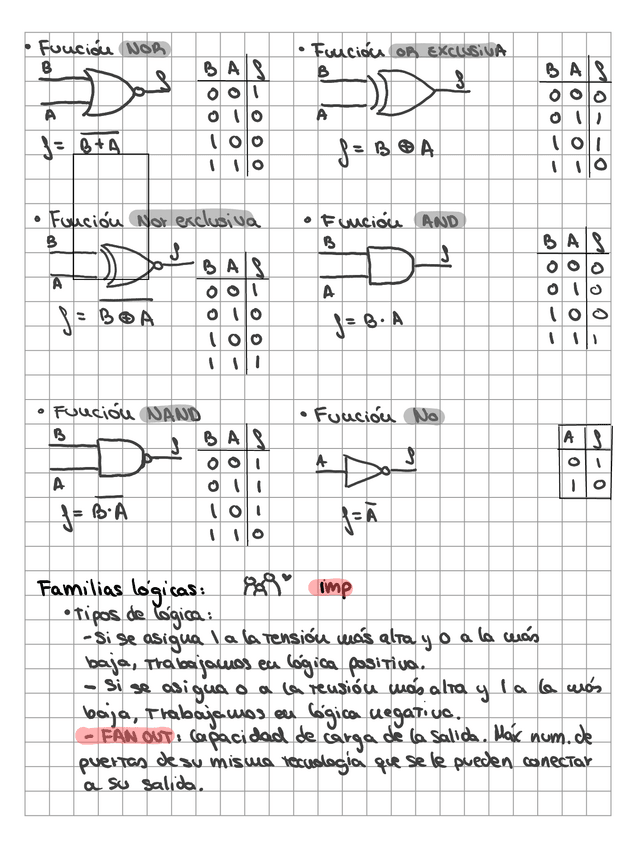 • Función NOR
B
A
f
f = B+A
B A f
0 0 1
0 1 0
1 0 0
1 1 0
• Función OR EXCLUSIVA
B
A
f
f = B ⊕ A
B A f
0 0 0
0 1 1
1 0 1
1 1 0
• Función Nor exclusiva
B
A
f
f = B ⊕ A
B A f
0 0 1
0 1 0
1 0 0
1 1 1
• Función AND
B
A
f
f = B · A
B A f
0 0 0
0 1 0
1 0 0
1 1 1
• Función NAND
B
A
f
f = B·A
B A f
0 0 1
0 1 1
1 0 1
1 1 0
• Función No
A
f
f = A
A f
0 1
1 0
Familias lógicas: imp
• Tipos de lógica:
- Si se asigna 1 a la tensión más alta y 0 a la más
baja, trabajamos en lógica positiva.
- Si se asigna 0 a la tensión más alta y 1 a la más
baja, trabajamos en lógica negativa.
- FAN OUT: Capacidad de carga de la salida. Máx num. de
puertas de su misma tecnología que se le pueden conectar
a su salida.